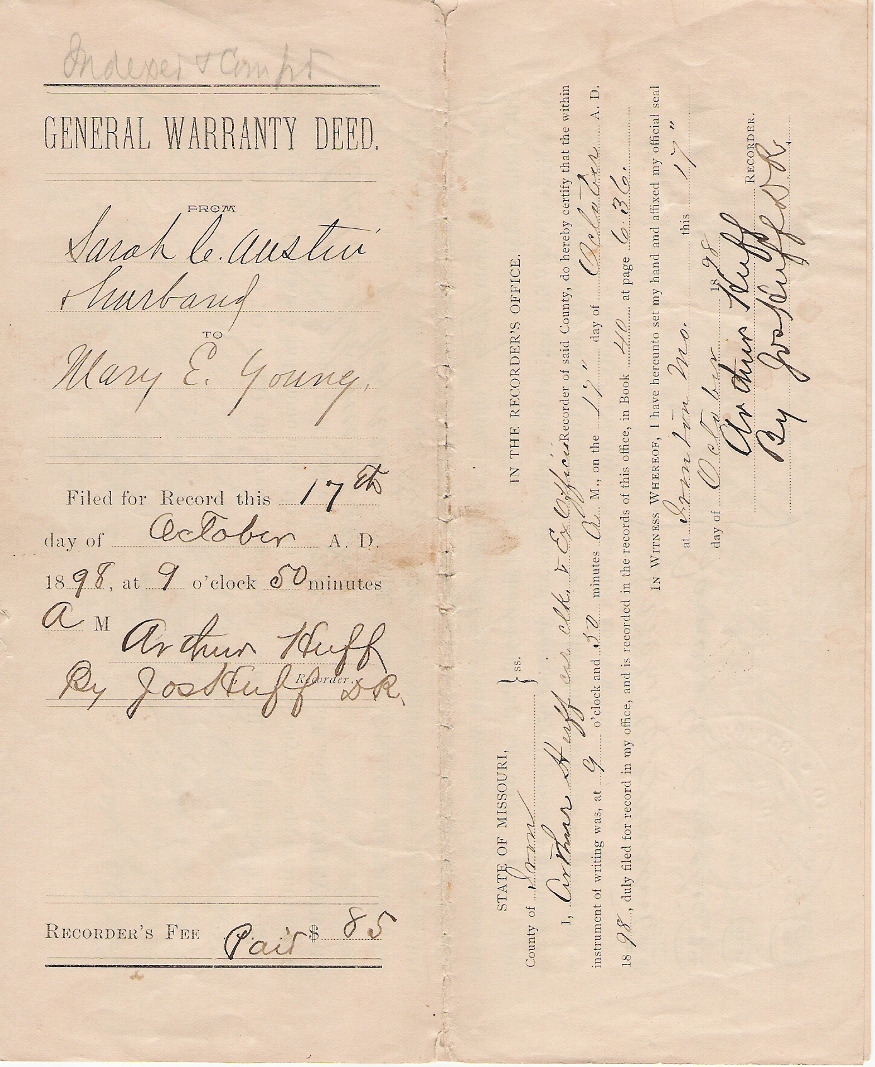 Indexed & Compt
GENERAL WARRANTY DEED.
FROM
Sarah C. Austin
& husband
TO
Mary E. Young.
Filed for Record this 17th
day of October A. D.
1898, at 9 o'clock 50 minutes
A M
Arthur Huff
Recorder.
By Jos Huff D.R.
RECORDER'S FEE Paid $ 85
IN THE RECORDER'S OFFICE.
STATE OF MISSOURI,
County of Iron } ss.
I, Arthur Huff cir clk. & Ex Officio Recorder of said County, do hereby certify that the within
instrument of writing was, at 9 o'clock and 50 minutes A. M., on the 17" day of October A. D.
1898, duly filed for record in my office, and is recorded in the records of this office, in Book 40 at page 636.
IN WITNESS WHEREOF, I have hereunto set my hand and affixed my official seal
at Ironton Mo. this 17"
day of October 1898
Arthur Huff
RECORDER.
By Jos Huff D.R.